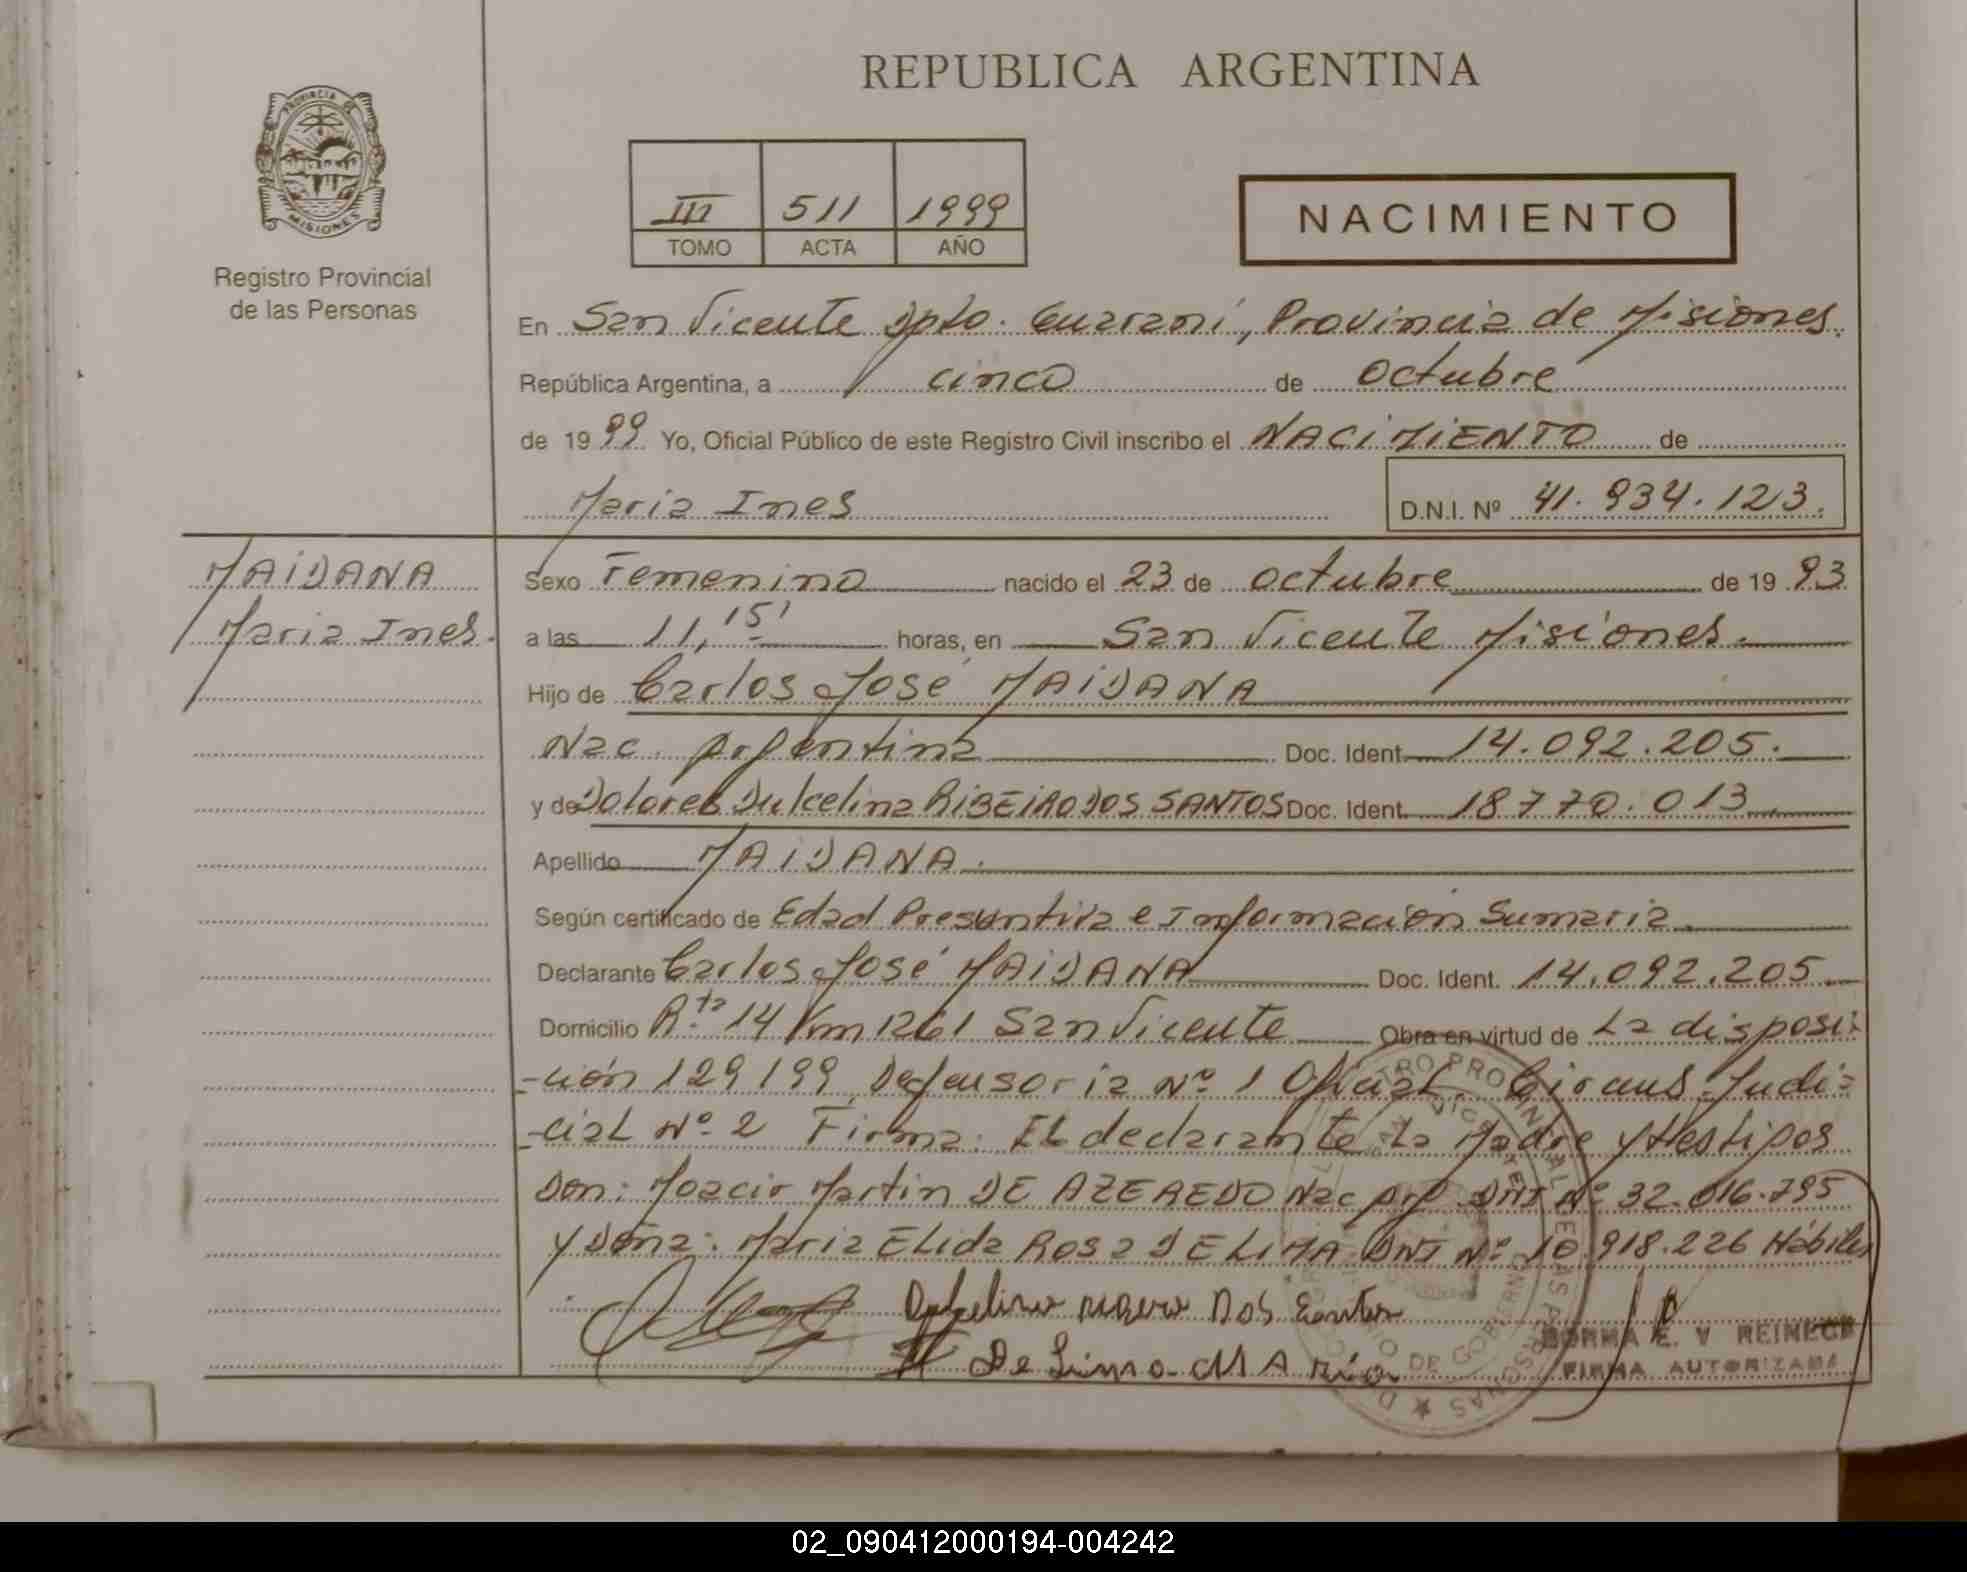 REPUBLICA ARGENTINA
PROVINCIA DE
MISIONES
Registro Provincial
de las Personas
III 511 1999
TOMO ACTA AÑO
NACIMIENTO
En San Vicente Dpto. Guaraní, Provincia de Misiones.
República Argentina, a cinco de Octubre
de 1999 Yo, Oficial Público de este Registro Civil inscribo el NACIMIENTO de
Maria Ines
D.N.I. Nº 41.934.123.
MAIDANA
Maria Ines.
Sexo Femenino nacido el 23 de octubre de 1993
a las 11,15' horas, en San Vicente Misiones.
Hijo de Carlos José MAIDANA
Nac. Argentina Doc. Ident. 14.092.205.
y de Dolores Dulcelina RIBEIRO DOS SANTOS Doc. Ident. 18770.013
Apellido MAIDANA.
Según certificado de Edad Presuntiva e Información Sumaria
Declarante Carlos José MAIDANA Doc. Ident. 14.092.205
Domicilio R.ta 14 Km 1261 San Vicente Obra en virtud de La disposi-
-ción 129/99 Defensoria Nº 1 Oficial. Circuns. Judi-
-cial Nº 2 Firma: El declarante La Madre y testigos
Don: Moacir Martin DE AZEREDO Nac Arg DNI Nº 32.016.795
y Doña: Maria Elida Rosa DE LIMA DNI Nº 10.918.226 Hábiles
Dos Santos
De Lima MARia
NORMA E. V REINECK
FIRMA AUTORIZADA
02_090412000194-004242